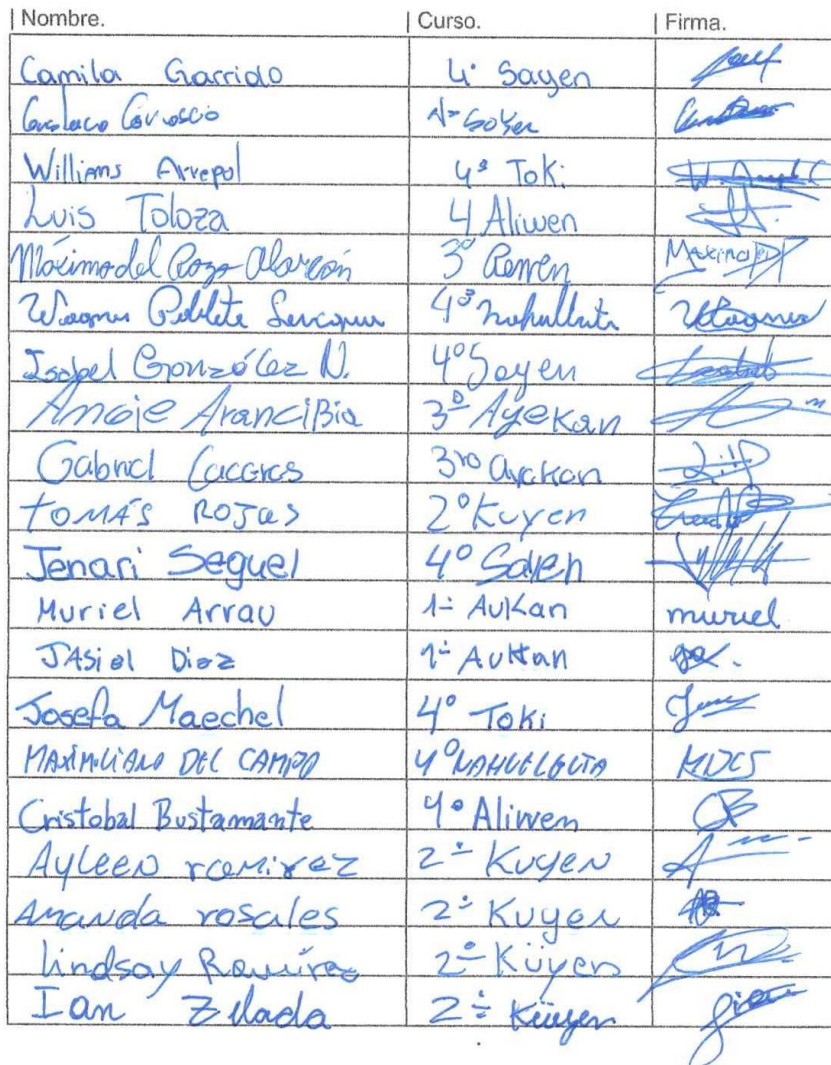 Nombre. Curso. Firma.
Camila Garrido 4° Sayen
Williams Arrepol 4° Toki W.
Luis Toloza 4 Aliwen
Máximo del Pozo Alarcón 3° Maximo
Wagner Poblete 4° Wagner
Isabel González N. 4° Sayen
Angie Arancibia 3° Ayekan
Gabriel Caceres 3ro ayekan
TOMÁS ROJAS 2° Kuyen
Jenari Seguel 4° Sayen
Muriel Arrau 1° Aukan muriel
JASiel Diaz 1° Aukan
Josefa Maechel 4° Toki
MAXIMILIANO DEL CAMPO 4° NAHUELBUTA MDCS
Cristobal Bustamante 4° Aliwen CB
Ayleen ramirez 2° Kuyen
Amanda rosales 2° Kuyen
Lindsay Ramírez 2° Küyen
Ian Zelada 2° Küyen